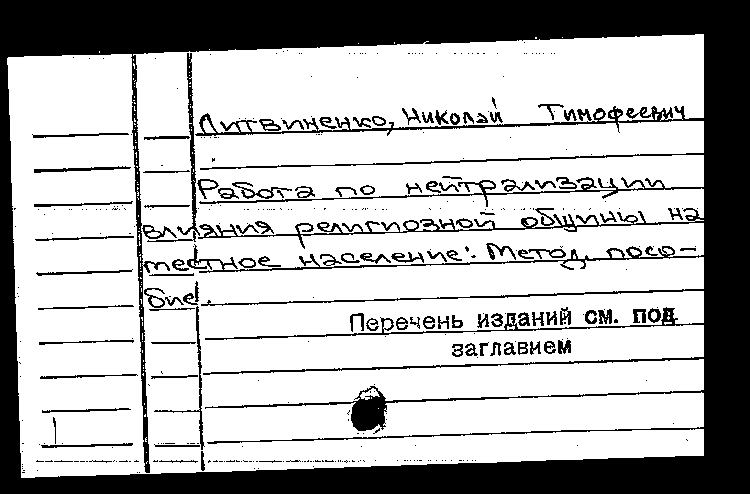 Литвиненко, Николай Тимофеевич
Работа по нейтрализации
влияния религиозной общины на
местное население: Метод. посо-
бие.
Перечень изданий см. под
заглавием